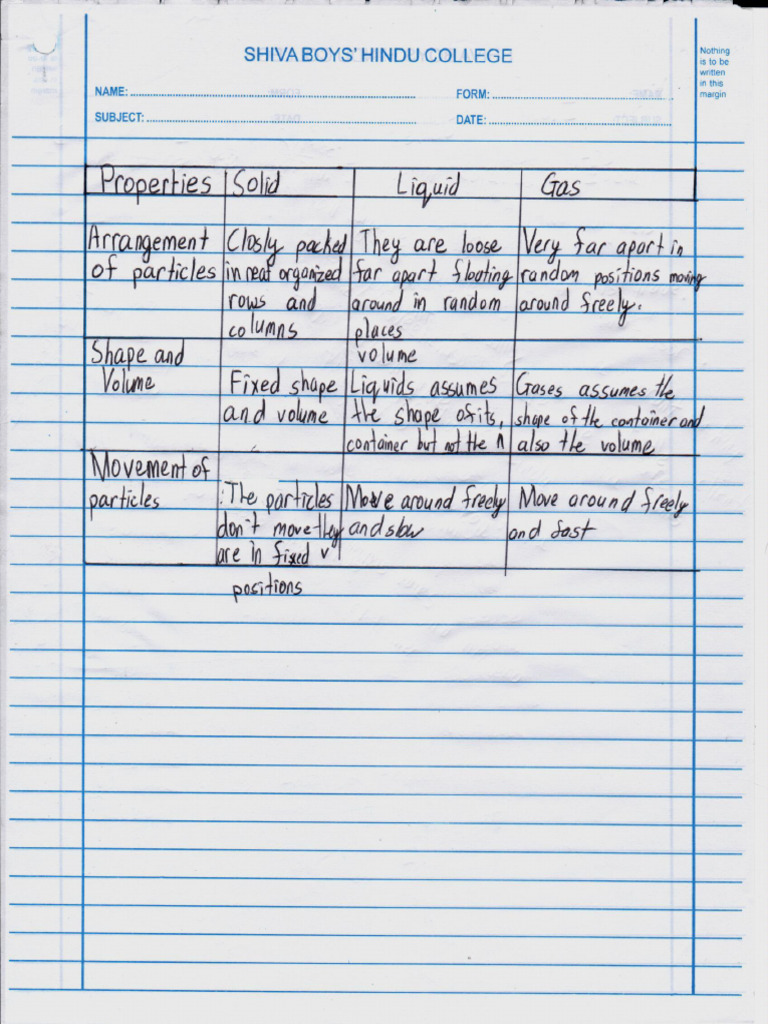 SHIVA BOYS' HINDU COLLEGE
Nothing
is to be
written
in this
margin
NAME:
FORM:
SUBJECT:
DATE:
Properties Solid Liquid Gas
Arrangement
of particles
Closly packed
in neat organized
rows and
columns
They are loose
far apart floating
around in random
places
Very far apart in
random positions moving
around freely.
Shape and
Volume
Fixed shape
and volume
Liquids assumes
the shape of its,
container but not the ʌ
volume
Gases assumes the
shape of the container and
also the volume
Movement of
particles
:The particles
don't move they
are in fixed v
positions
Move around freely
and slow
Move around freely
and fast